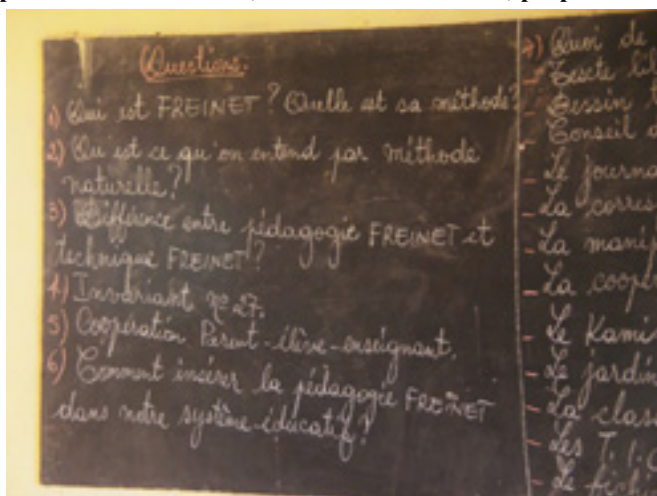 Questions:
1) Qui est FREINET? Quelle est sa méthode?
2) Qu'est ce qu'on entend par méthode
naturelle?
3) Différence entre pédagogie FREINET et
technique FREINET?
4) Invariant n° 27.
5) Coopération Parent-élève-enseignant.
6) Comment insérer la pédagogie FREINET
dans notre système éducatif?
7) Quoi de
- Texte lib
- Dessin
- Conseil d
- Le journa
- La corres
- La manip
- La coopé
- Le Kami
- Le jardin
- La clas
- Les T.I.C
- Le fichi